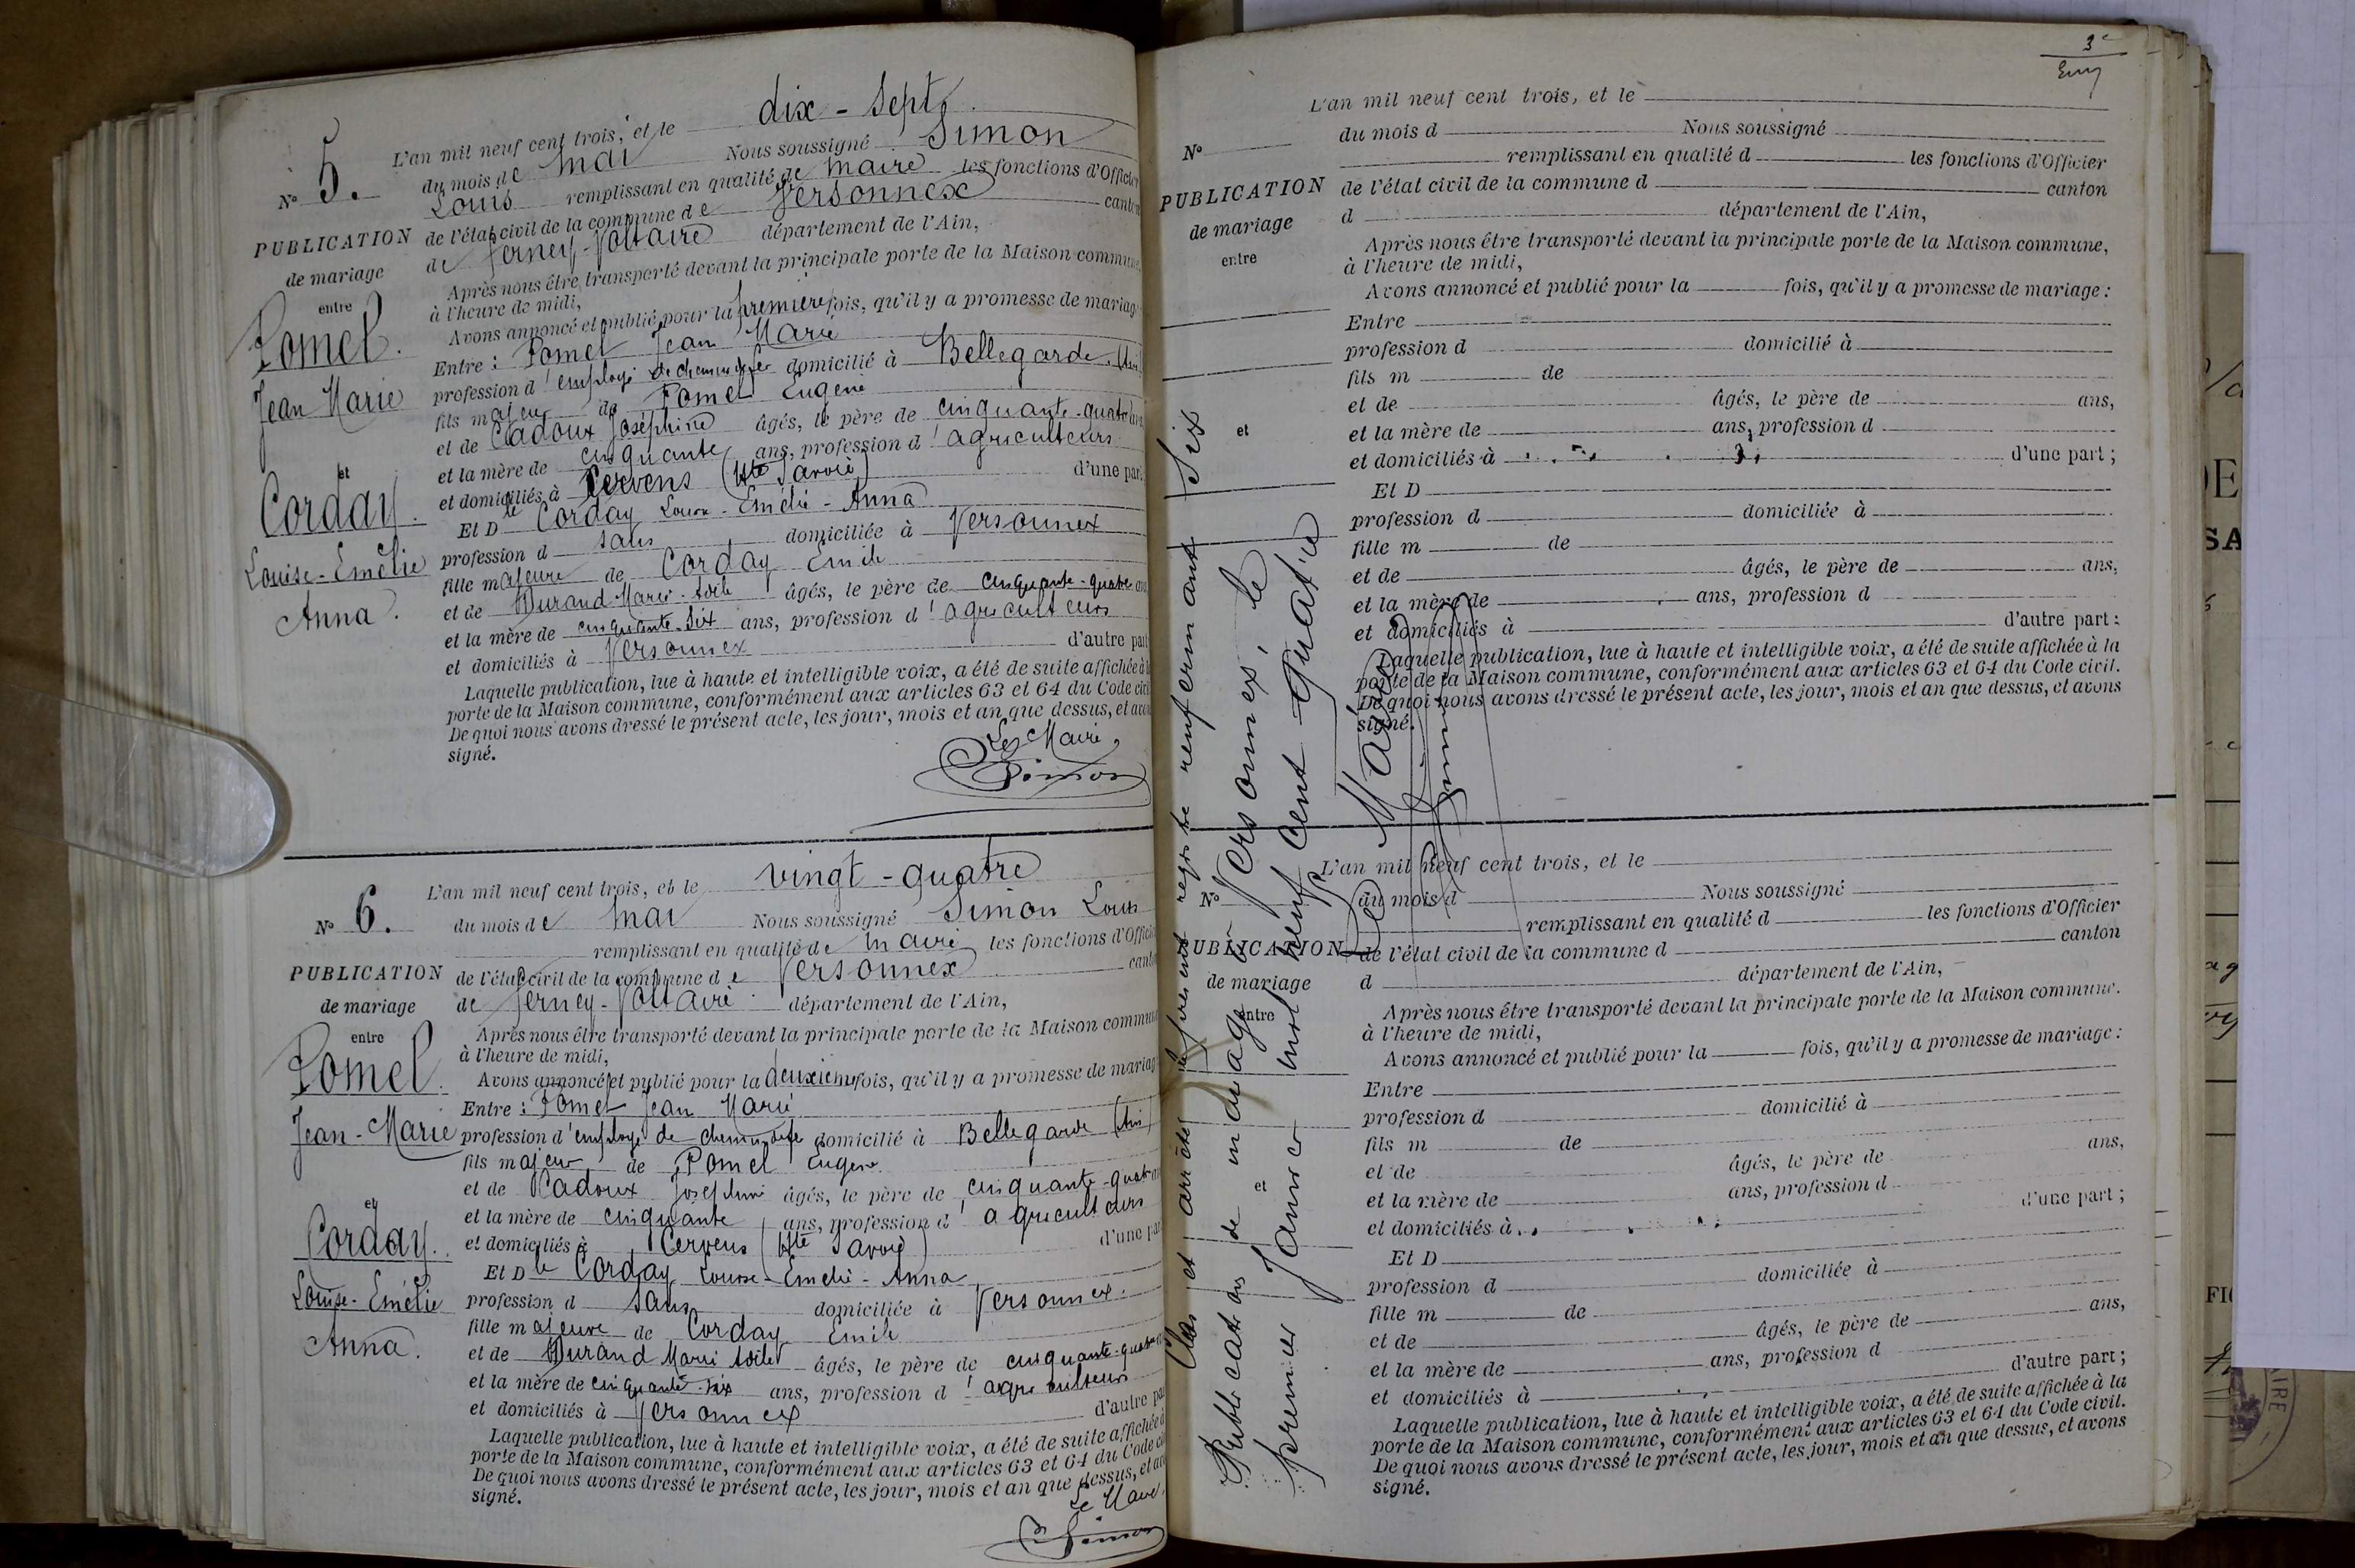 dix-Sept
L'an mil neuf cent trois, et le
du mois de mai Nous soussigné Simon
N° 5.
Louis remplissant en qualité de maire les fonctions d'Officier
PUBLICATION
de l'état civil de la commune de Versonnex canton
de mariage
de Ferney-Voltaire département de l'Ain,
entre
Après nous être transporté devant la principale porte de la Maison commune,
à l'heure de midi,
Avons annoncé et publié pour la première fois, qu'il y a promesse de mariage
Pomel.
Jean Marie
Entre : Pomel Jean Marie
profession d'employé de chemin de fer domicilié à Bellegarde (Ain)
fils majeur de Pomel Eugène
et de Cadoux Joséphine âgés, le père de cinquante-quatre ans
et la mère de cinquante ans, profession d'agriculteurs
et domiciliés à Cervens (Hte Savoie) d'une part
et
Corday.
Louise-Emélie
Anna.
Et Dlle Corday Louise-Emélie-Anna
profession d sans domiciliée à Versonnex
fille majeure de Corday Emile
et de Durand Marie âgés, le père de cinquante-quatre ans
et la mère de cinquante-six ans, profession d'agriculteurs
et domiciliés à Versonnex d'autre part
Laquelle publication, lue à haute et intelligible voix, a été de suite affichée à la
porte de la Maison commune, conformément aux articles 63 et 64 du Code civil
De quoi nous avons dressé le présent acte, les jour, mois et an que dessus, et avons
signé.
Le Maire,
Simon
vingt-quatre
L'an mil neuf cent trois, et le
N° 6.
du mois de mai Nous soussigné Simon Louis
remplissant en qualité de maire les fonctions d'Officier
PUBLICATION
de l'état civil de la commune de Versonnex canton
de mariage
de Ferney-Voltaire département de l'Ain,
entre
Après nous être transporté devant la principale porte de la Maison commune
à l'heure de midi,
Avons annoncé et publié pour la deuxième fois, qu'il y a promesse de mariage
Pomel.
Jean-Marie
Entre : Pomel Jean Marie
profession d'employé de chemin de fer domicilié à Bellegarde (Ain)
fils majeur de Pomel Eugène
et de Cadoux Joséphine âgés, le père de cinquante-quatre ans
et la mère de cinquante ans, profession d'agriculteurs
et domiciliés à Cervens (Hte Savoie) d'une part
et
Corday.
Louise-Emélie
Anna.
Et Dlle Corday Louise-Emélie-Anna
profession d sans domiciliée à Versonnex.
fille majeure de Corday Emile
et de Durand Marie âgés, le père de cinquante-quatre
et la mère de cinquante-six ans, profession d'agriculteurs
et domiciliés à Versonnex d'autre part
Laquelle publication, lue à haute et intelligible voix, a été de suite affichée à
porte de la Maison commune, conformément aux articles 63 et 64 du Code civil
De quoi nous avons dressé le présent acte, les jour, mois et an que dessus, et avons
signé.
Le Maire,
Simon
3e
L'an mil neuf cent trois, et le
du mois d Nous soussigné
N°
remplissant en qualité d les fonctions d'Officier
PUBLICATION
de l'état civil de la commune d canton
de mariage
d département de l'Ain,
entre
Après nous être transporté devant la principale porte de la Maison commune,
à l'heure de midi,
Avons annoncé et publié pour la fois, qu'il y a promesse de mariage :
Entre
profession d domicilié à
fils m de
et de âgés, le père de ans,
et
et la mère de ans, profession d
et domiciliés à d'une part ;
Et D
profession d domiciliée à
fille m de
et de âgés, le père de ans,
et la mère de ans, profession d
et domiciliés à d'autre part :
Laquelle publication, lue à haute et intelligible voix, a été de suite affichée à la
porte de la Maison commune, conformément aux articles 63 et 64 du Code civil.
De quoi nous avons dressé le présent acte, les jour, mois et an que dessus, et avons
signé.
Clos et arrêté le présent registre renfermant Six
Publications de mariage à Versonnex, le
premier Janvier mil neuf cent-quatre
Le Maire
Simon
L'an mil neuf cent trois, et le
N°
du mois d Nous soussigné
remplissant en qualité d les fonctions d'Officier
PUBLICATION
de l'état civil de la commune d canton
de mariage
d département de l'Ain,
entre
Après nous être transporté devant la principale porte de la Maison commune.
à l'heure de midi,
Avons annoncé et publié pour la fois, qu'il y a promesse de mariage :
Entre
profession d domicilié à
fils m de
et de âgés, le père de ans,
et
et la mère de ans, profession d
et domiciliés à d'une part ;
Et D
profession d domiciliée à
fille m de
et de âgés, le père de ans,
et la mère de ans, profession d
et domiciliés à d'autre part ;
Laquelle publication, lue à haute et intelligible voix, a été de suite affichée à la
porte de la Maison commune, conformément aux articles 63 et 64 du Code civil.
De quoi nous avons dressé le présent acte, les jour, mois et an que dessus, et avons
signé.